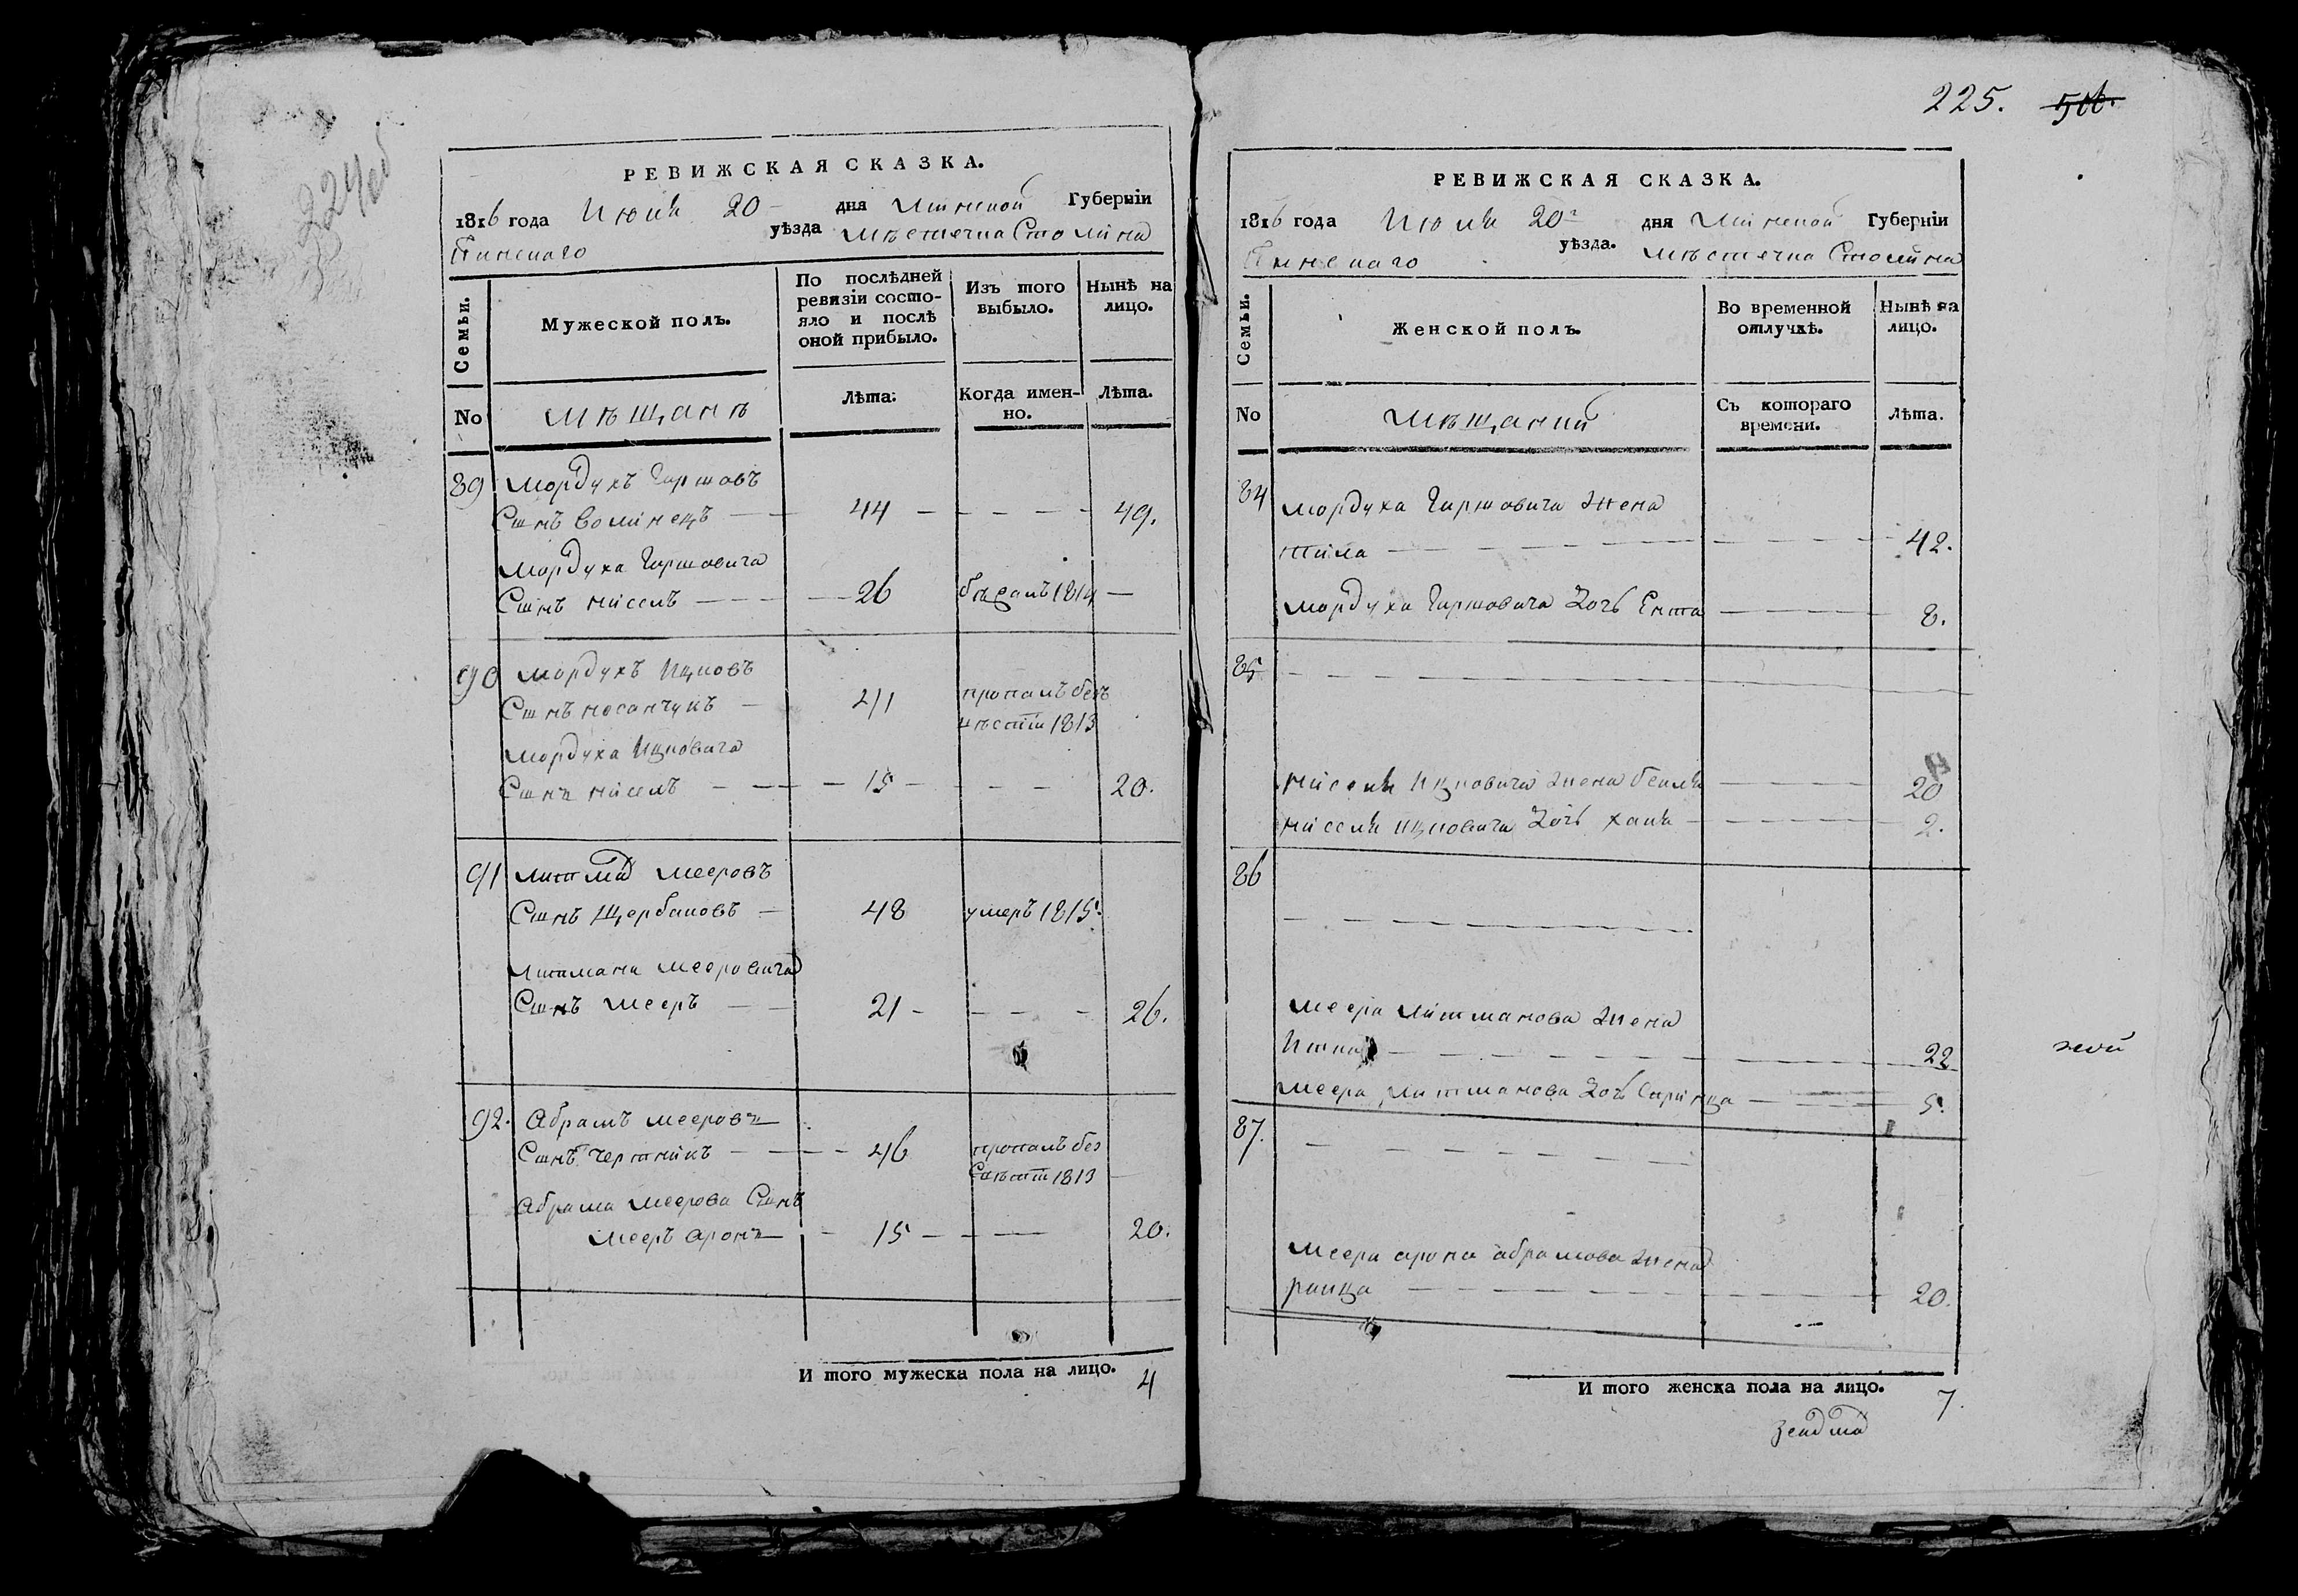 224об
РЕВИЖСКАЯ СКАЗКА.
1816 года Июля 20 дня Минской Губерніи
Пинскаго уѣзда мѣстечка Столина
Семьи.
Мужеской полъ.
По послѣдней ревизіи состояло и послѣ оной прибыло.
Изъ того выбыло.
Нынѣ на лицо.
No
мѣщанъ
Лѣта.
Когда именно.
Лѣта.
89 Мордухъ Гиршовъ
Сынъ 44 49.
Мордуха Гиршовича
Сынъ Нисель 26 1814
90 Мордухъ Ицковъ
Сынъ 41 пропалъ безъ
вѣсти 1813
Мордуха Ицковича
Сынъ Нисель 15 20.
91 Литман Мееровъ
Сынъ Щербаковъ 48 умеръ 1815.
Литмана Мееровича
Сынъ Мееръ 21 26.
92. Абрамъ Мееровъ
Сынъ Чертникъ 46 пропалъ без
вѣсти 1813
Абрама Меерова Сынъ
Мееръ Аронъ 15 20.
И того мужеска пола на лицо. 4
225.
РЕВИЖСКАЯ СКАЗКА.
1816 года Июля 20 дня Минской Губерніи
Пинскаго уѣзда. мѣстечка Столина
Семьи.
Женской полъ.
Во временной отлучкѣ.
Нынѣ на лицо.
No
мѣщанки
Съ котораго времени.
Лѣта.
84 Мордуха Гиршовича Жена
42.
Мордуха Гиршовича Дочь Ента 8.
85
Ниселя Ицковича жена Бейля 20
Ниселя Ицковича Дочь Хая 2.
86
Меера Литманова Жена
Итка 22
Меера Литманова Дочь 5.
87.
Меера Арона Абрамова Жена
Раица 20.
И того женска пола на лицо. 7.